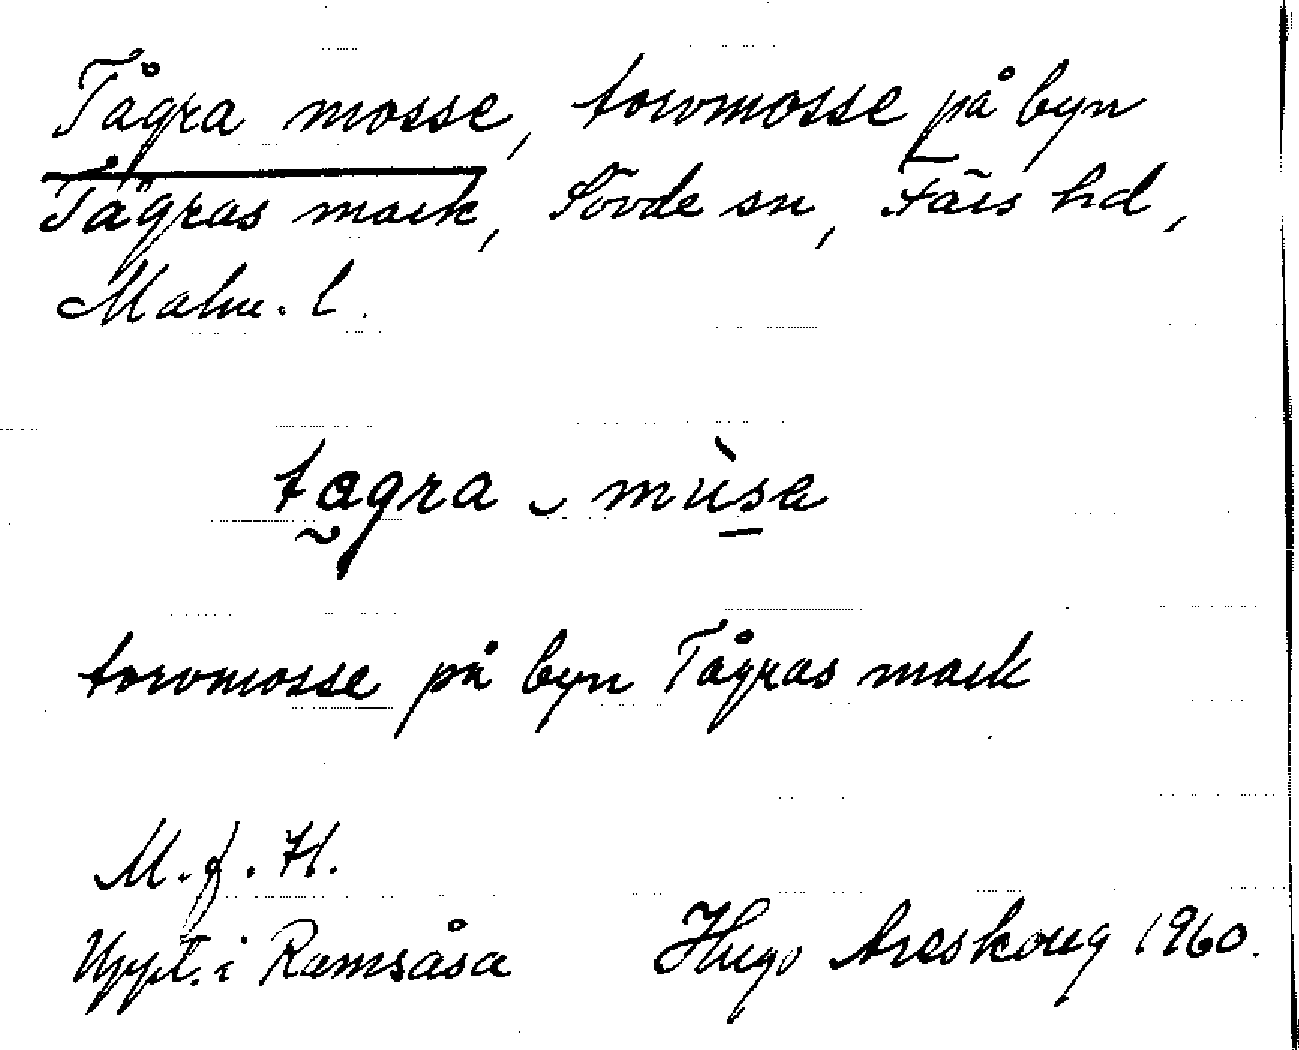 Tågra mosse, torvmosse på byn
Tågras mark, Sövde sn, Färs hd,
Malm. l.
tagra ‿ mùsa
torvmosse på byn Tågras mark
M. f. H.
Uppt. i Ramsåsa Hugo Areskoug 1960.